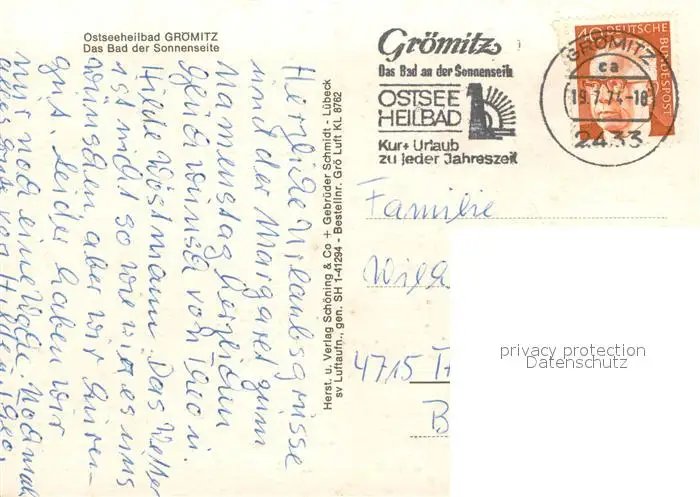 Ostseeheilbad GRÖMITZ
Das Bad der Sonnenseite
Herzliche Urlaubsgrüsse
und der Margaret zum
Namenstag herzlichen
Glückwunsch von Theo u.
Hilde Wöstmann. Das Wetter
ist nicht so wie wir es uns
wünschen aber wir sind
gut. Leider haben wir
nur noch eine Woche. Nochmals
alles gute von Hilde u. Theo.
Herst. u. Verlag Schöning & Co + Gebrüder Schmidt - Lübeck
sv Luftaufn., gen. SH 1-41294 - Bestellnr. Grö Luft KL 8762
Grömitz
Das Bad an der Sonnenseite
OSTSEE
HEILBAD
Kur + Urlaub
zu jeder Jahreszeit
GRÖMITZ
ca
19.7.74-18
2433
40
DEUTSCHE
BUNDESPOST
Familie
4715
B
privacy protection
Datenschutz